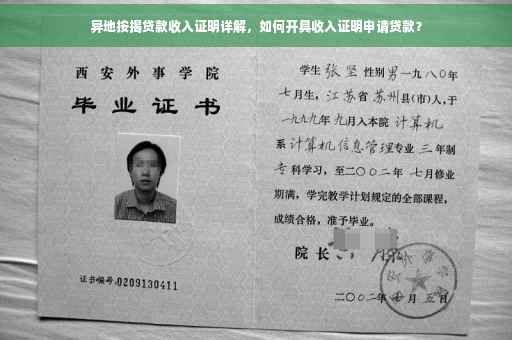 异地按揭贷款收入证明详解，如何开具收入证明申请贷款？
西安外事学院
毕业证书
证书编号:0209130411
学生张坚性别男一九八〇年
七月生，江苏省苏州县(市)人，于
一九九九年九月入本院计算机
系计算机信息管理专业三年制
专科学习，至二〇〇二年七月修业
期满，学完教学计划规定的全部课程，
成绩合格，准予毕业。
院长
二〇〇二年 月五日